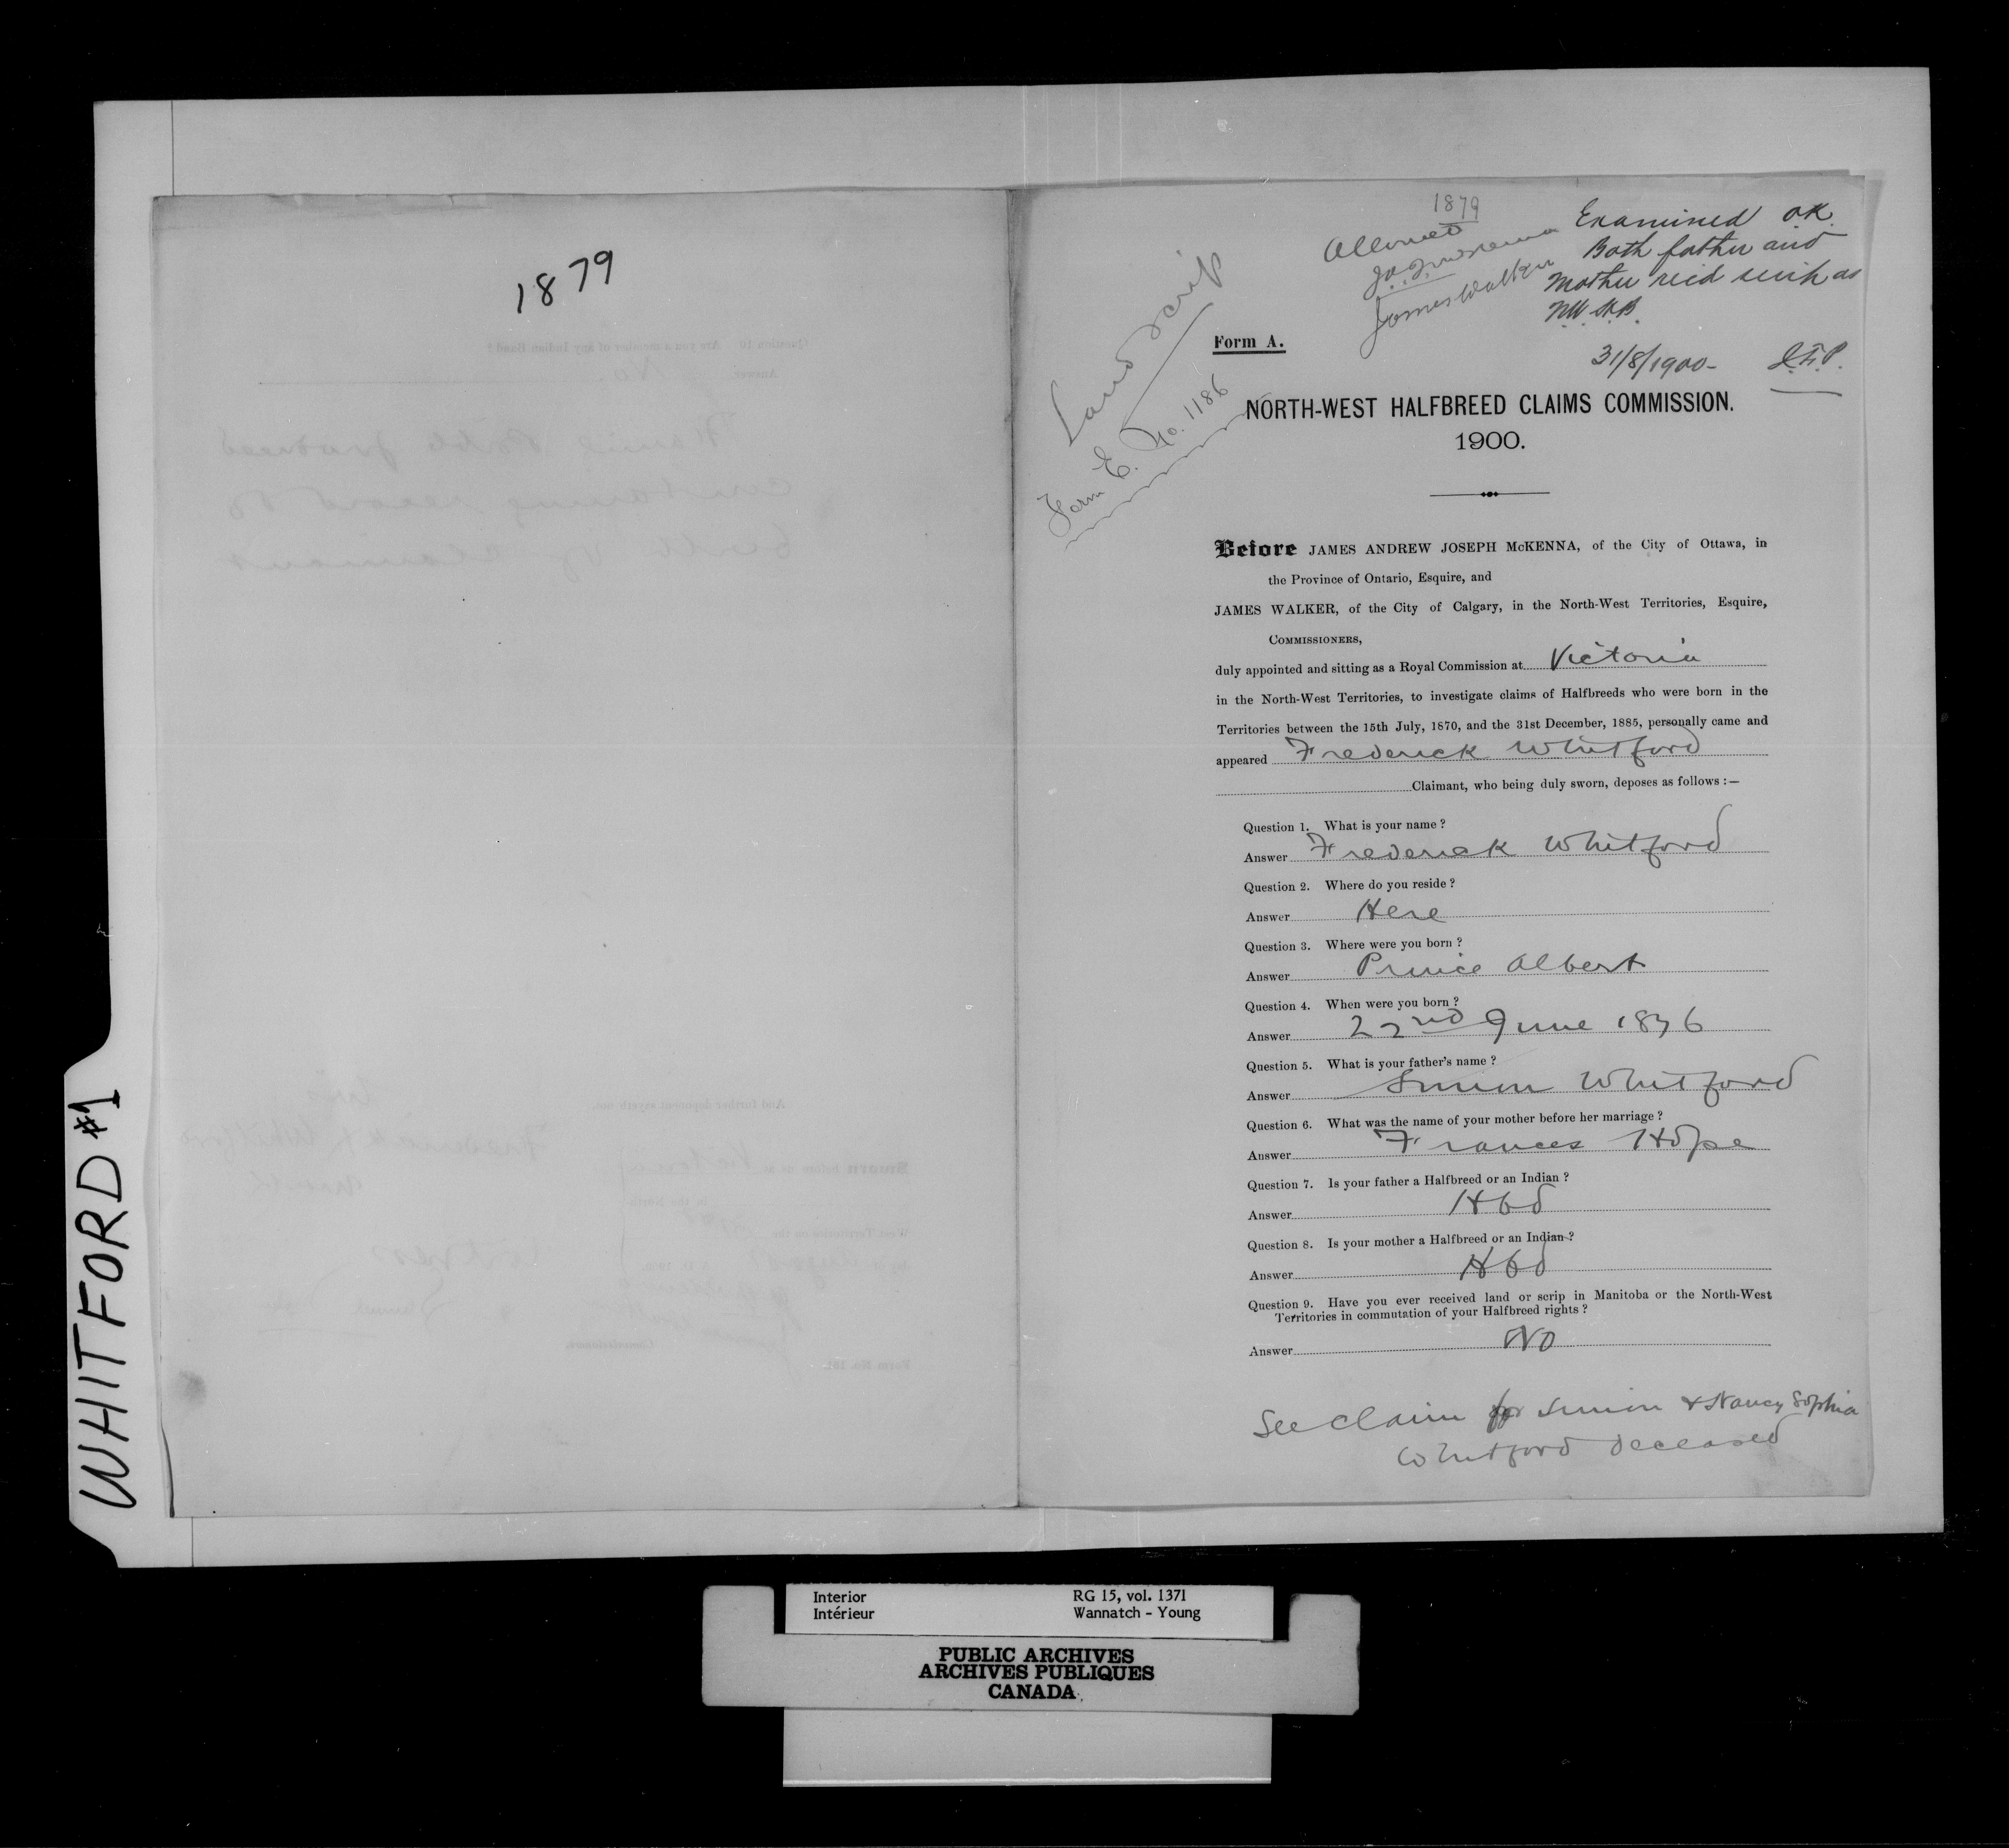 WHITFORD #1
1879
1879
Allowed
J.A.J. McKenna
James Walker
Examined OK.
Both father and
Mother rec'd scrip as
N.W. H.B.
31/8/1900-
Land Scrip
Form E. No. 1186
Form A.
NORTH-WEST HALFBREED CLAIMS COMMISSION.
1900.
Before JAMES ANDREW JOSEPH McKENNA, of the City of Ottawa, in
the Province of Ontario, Esquire, and
JAMES WALKER, of the City of Calgary, in the North-West Territories, Esquire,
COMMISSIONERS,
duly appointed and sitting as a Royal Commission at Victoria
in the North-West Territories, to investigate claims of Halfbreeds who were born in the
Territories between the 15th July, 1870, and the 31st December, 1885, personally came and
appeared Frederick Whitford
Claimant, who being duly sworn, deposes as follows :—
Question 1. What is your name ?
Answer Frederick Whitford
Question 2. Where do you reside ?
Answer Here
Question 3. Where were you born ?
Answer Prince Albert
Question 4. When were you born ?
Answer 22nd June 1876
Question 5. What is your father's name ?
Answer Simon Whitford
Question 6. What was the name of your mother before her marriage ?
Answer Frances Hope
Question 7. Is your father a Halfbreed or an Indian ?
Answer Hbd
Question 8. Is your mother a Halfbreed or an Indian ?
Answer Hbd
Question 9. Have you ever received land or scrip in Manitoba or the North-West
Territories in commutation of your Halfbreed rights ?
Answer No
See claim for Simon & Nancy Sophia
Whitford deceased
Interior
Intérieur
RG 15, vol. 1371
Wannatch - Young
PUBLIC ARCHIVES
ARCHIVES PUBLIQUES
CANADA